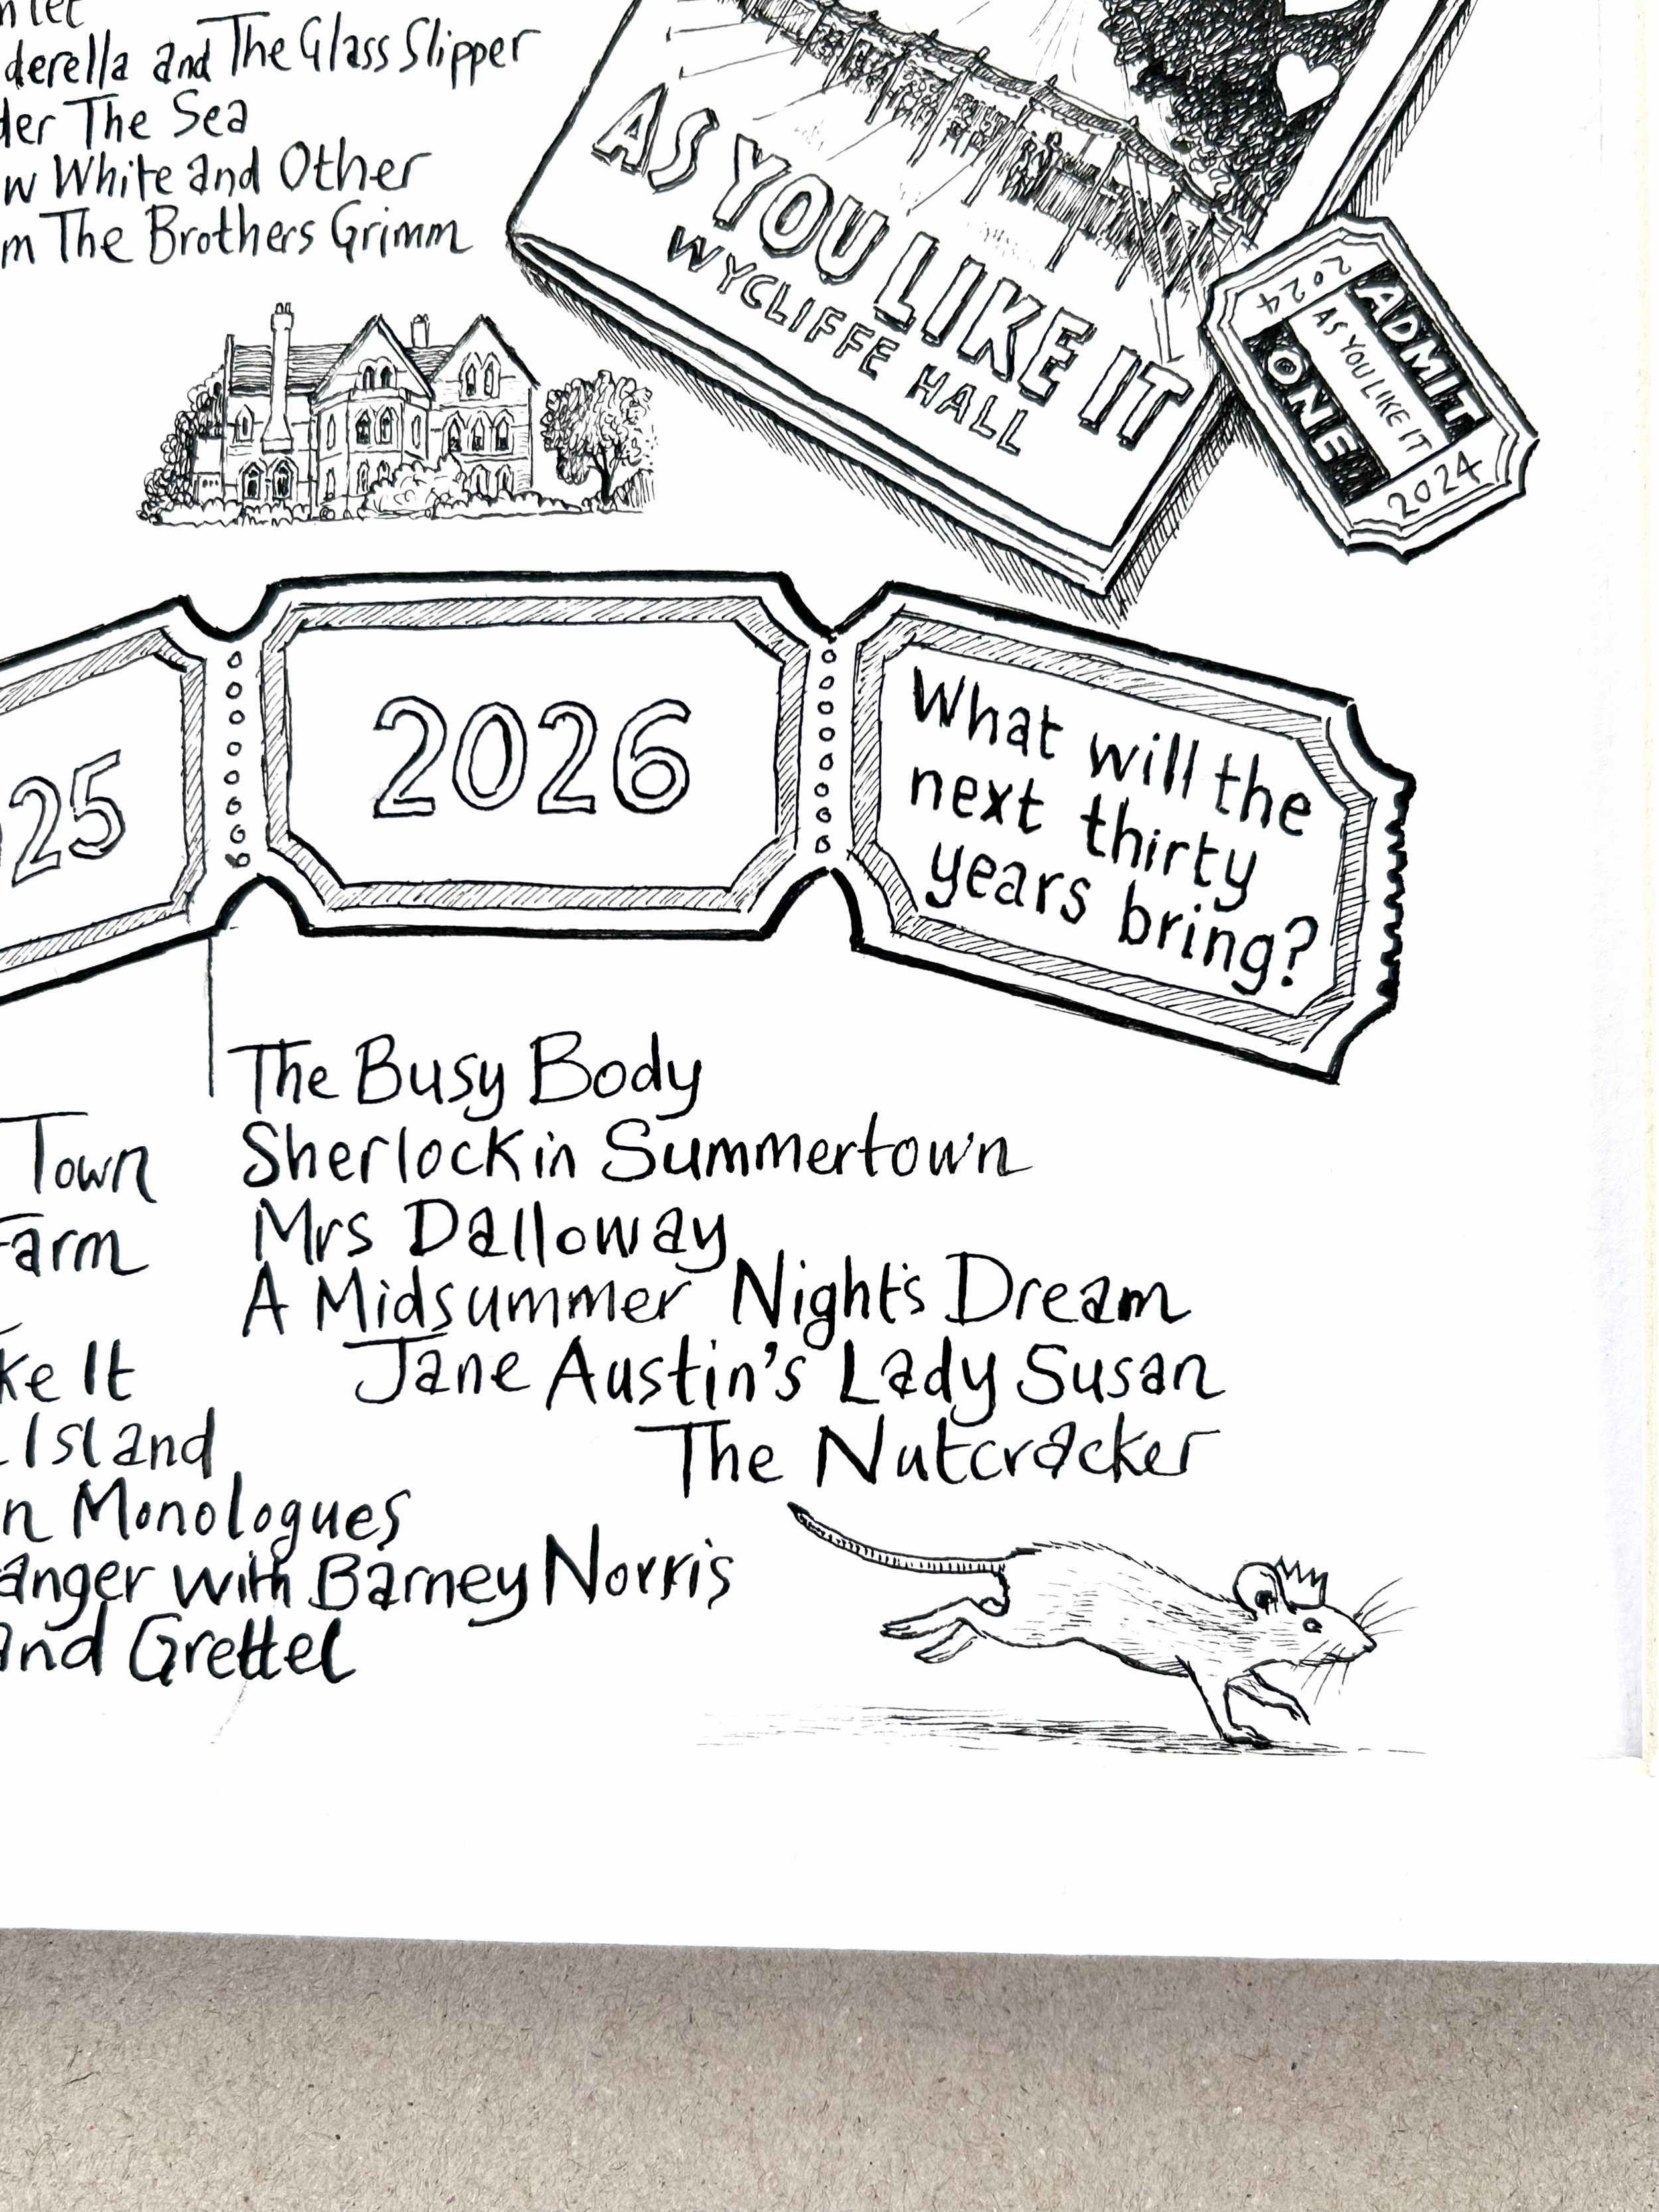 derella and The Glass Slipper
der The Sea
w White and Other
m The Brothers Grimm
AS YOU LIKE IT
WYCLIFFE HALL
2024
ADMIT
AS YOU LIKE IT
ONE
2024
25
2026
What will the
next thirty
years bring?
The Busy Body
Sherlock in Summertown
Mrs Dalloway
A Midsummer Night's Dream
Jane Austin's Lady Susan
The Nutcracker
Town
Farm
ke It
Island
n Monologues
anger with Barney Norris
and Grettel